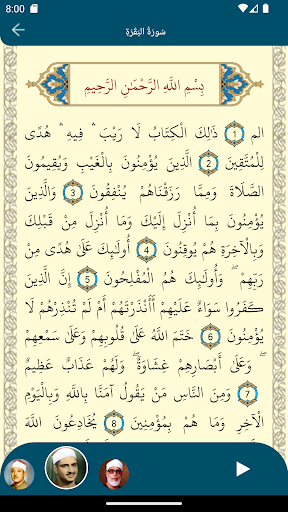 8:00
سُورَةُ البَقَرَةِ
بِسْمِ اللَّهِ الرَّحْمَٰنِ الرَّحِيمِ
الم 1 ذَٰلِكَ الْكِتَابُ لَا رَيْبَ ۛ فِيهِ ۛ هُدًى
لِّلْمُتَّقِينَ 2 الَّذِينَ يُؤْمِنُونَ بِالْغَيْبِ وَيُقِيمُونَ
الصَّلَاةَ وَمِمَّا رَزَقْنَاهُمْ يُنفِقُونَ 3 وَالَّذِينَ
يُؤْمِنُونَ بِمَا أُنزِلَ إِلَيْكَ وَمَا أُنزِلَ مِن قَبْلِكَ
وَبِالْآخِرَةِ هُمْ يُوقِنُونَ 4 أُولَٰئِكَ عَلَىٰ هُدًى مِّن
رَّبِّهِمْ ۖ وَأُولَٰئِكَ هُمُ الْمُفْلِحُونَ 5 إِنَّ الَّذِينَ
كَفَرُوا سَوَاءٌ عَلَيْهِمْ أَأَنذَرْتَهُمْ أَمْ لَمْ تُنذِرْهُمْ لَا
يُؤْمِنُونَ 6 خَتَمَ اللَّهُ عَلَىٰ قُلُوبِهِمْ وَعَلَىٰ سَمْعِهِمْ
ۖ وَعَلَىٰ أَبْصَارِهِمْ غِشَاوَةٌ ۖ وَلَهُمْ عَذَابٌ عَظِيمٌ
7 وَمِنَ النَّاسِ مَن يَقُولُ آمَنَّا بِاللَّهِ وَبِالْيَوْمِ
الْآخِرِ وَمَا هُم بِمُؤْمِنِينَ 8 يُخَادِعُونَ اللَّهَ